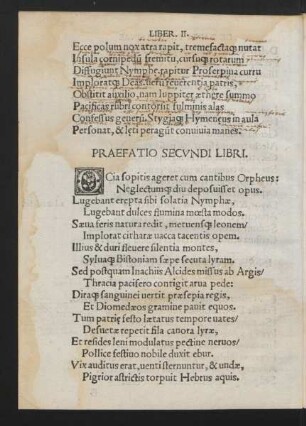 LIBER. II.
Ecce polum nox atra rapit, tremefactaq; nutat
Insula cornipedũ fremitu, cursuq; rotarum
Diffugiunt Nymphę. rapitur Proserpina curru
Imploratq; Deas.
Obstitit auxilio, nam Iuppiter ęthere summo
Pacificas rubri contorsit fulminis alas
Confessus generũ. Stygiaq; Hymenęus in aula
Personat, & lęti peragũt conuiuia manes.
PRAEFATIO SECVNDI LIBRI.
OCia sopitis ageret cum cantibus Orpheus:
Neglectumq; diu deposuisset opus.
Lugebant erepta sibi solatia Nymphæ,
Lugebant dulces flumina mœsta modos.
Sæua feris natura redit, metuensq; leonem/
Implorat citharæ uacca tacentis opem.
Illius & duri fleuere silentia montes,
Syluaq; Bistoniam sæpe secuta lyram.
Sed postquam Inachiis Alcides missus ab Argis/
Thracia pacifero contigit arua pede:
Diraq; sanguinei uertit præsepia regis,
Et Diomedæos gramine pauit equos.
Tum patrię festo lætatus tempore uates/
Desuetæ repetit fila canora lyræ,
Et resides leni modulatus pectine neruos/
Pollice festiuo nobile duxit ebur.
Vix auditus erat, uenti sternuntur, & undæ,
Pigrior astrictis torpuit Hebrus aquis.